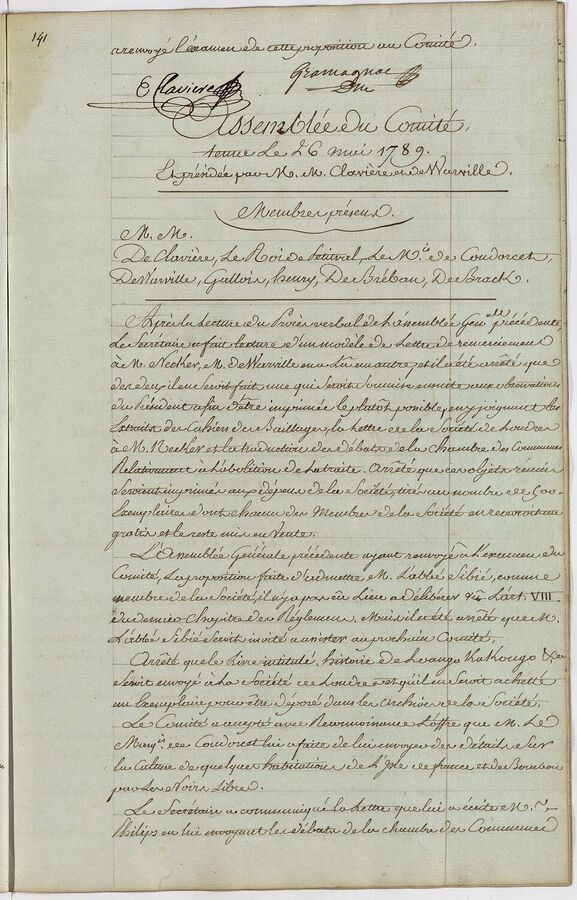 141
a renvoyé l'examen de cette proposition au Comité.
E Claviere Gramagnac
Assemblée du Comité,
tenue Le 26 mai 1789.
Et présidée par M. M. Clavière et de Warville.
Membres présens.
M. M.
De Clavière, Le Roi de Petitval, Le Mis. de Condorcet,
De Warville, Gallois, henry, De Bréban, De Brack.
Après la Lecture du Procès verbal de L'assemblée Génalle précédente,
Le Secrétaire a fait lecture d'un modèle de Lettre de remerciement
à M. Necker, M. de Warville en a lû un autre et il a été arrêté que
des deux il en seroit fait une qui seroit soumise ensuite aux observations
du Président afin d'être imprimée le plutôt possible, en y joignant les
Extraits des Cahiers de Bailliages, la Lettre de la Société de Londres
à M. Necker et la traduction des débats de la Chambre des Communes
Relativement à l'abolition de la traite. arrêté que ces objets réunis
seroient imprimés aux dépens de la Société, tirés au nombre de
Exemplaires dont chacun des Membres de la Société en recevroit un
gratis et le reste mis en Vente.
L'assemblée Générale précédente ayant renvoyé à l'examen du
Comité, La proposition faite d'admettre M. L'abbé Sibié, comme
membre de la Société, il n'y a pas eû Lieu à délibérer L'art. VIII
du dernier Chapitre des Réglemens. Mais il a été arrêté que M.
L'abbé Sibié seroit invité à assister au prochain Comité.
Arrêté que le Livre intitulé, histoire de Loango Kakongo &ca
seroit envoyé à La Société de Londres et qu'il en seroit acheté
un Exemplaire pour être déposé dans les Archives de la Société.
Le Comité a accepté avec Reconnoissance L'offre que M. Le
Marquis de Condorcet lui a faite de lui envoyer des détails sur
la Culture de quelques habitations de L'Isle de france et de Bourbon
par des Noirs Libres.
Le Secrétaire a communiqué la Lettre que lui a écrite M.
Philips en lui envoyant les débats de la chambre des Communes